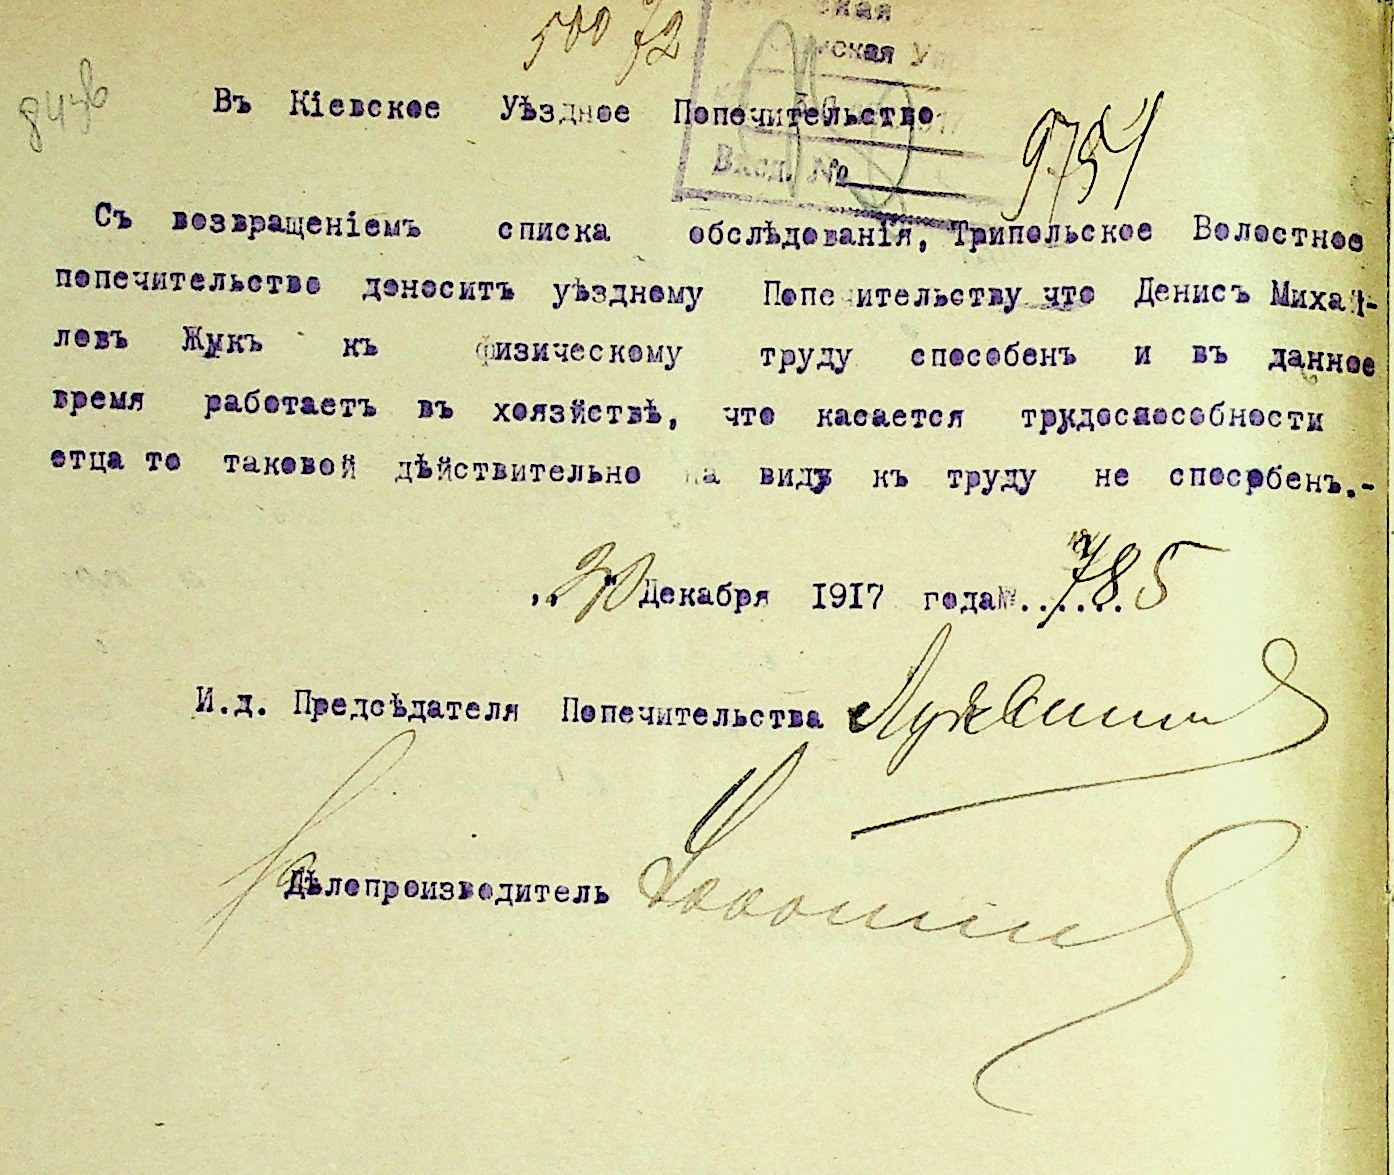 500 72
Въ Кіевское Уѣздное Попечительство
Вход. №
9751
Съ возвращеніемъ списка обслѣдованія, Трипольское Волостное
попечительство доноситъ уѣздному Попечительству что Денисъ Михай-
ловъ Жукъ къ физическому труду способенъ и въ данное
время работаетъ въ хоязйствѣ, что касается трудоспособности
отца то таковой дѣйствительно на видъ къ труду не способенъ.-
„30" Декабря 1917 года № 785
И.д. Предсѣдателя Попечительства
Дѣлопроизводитель